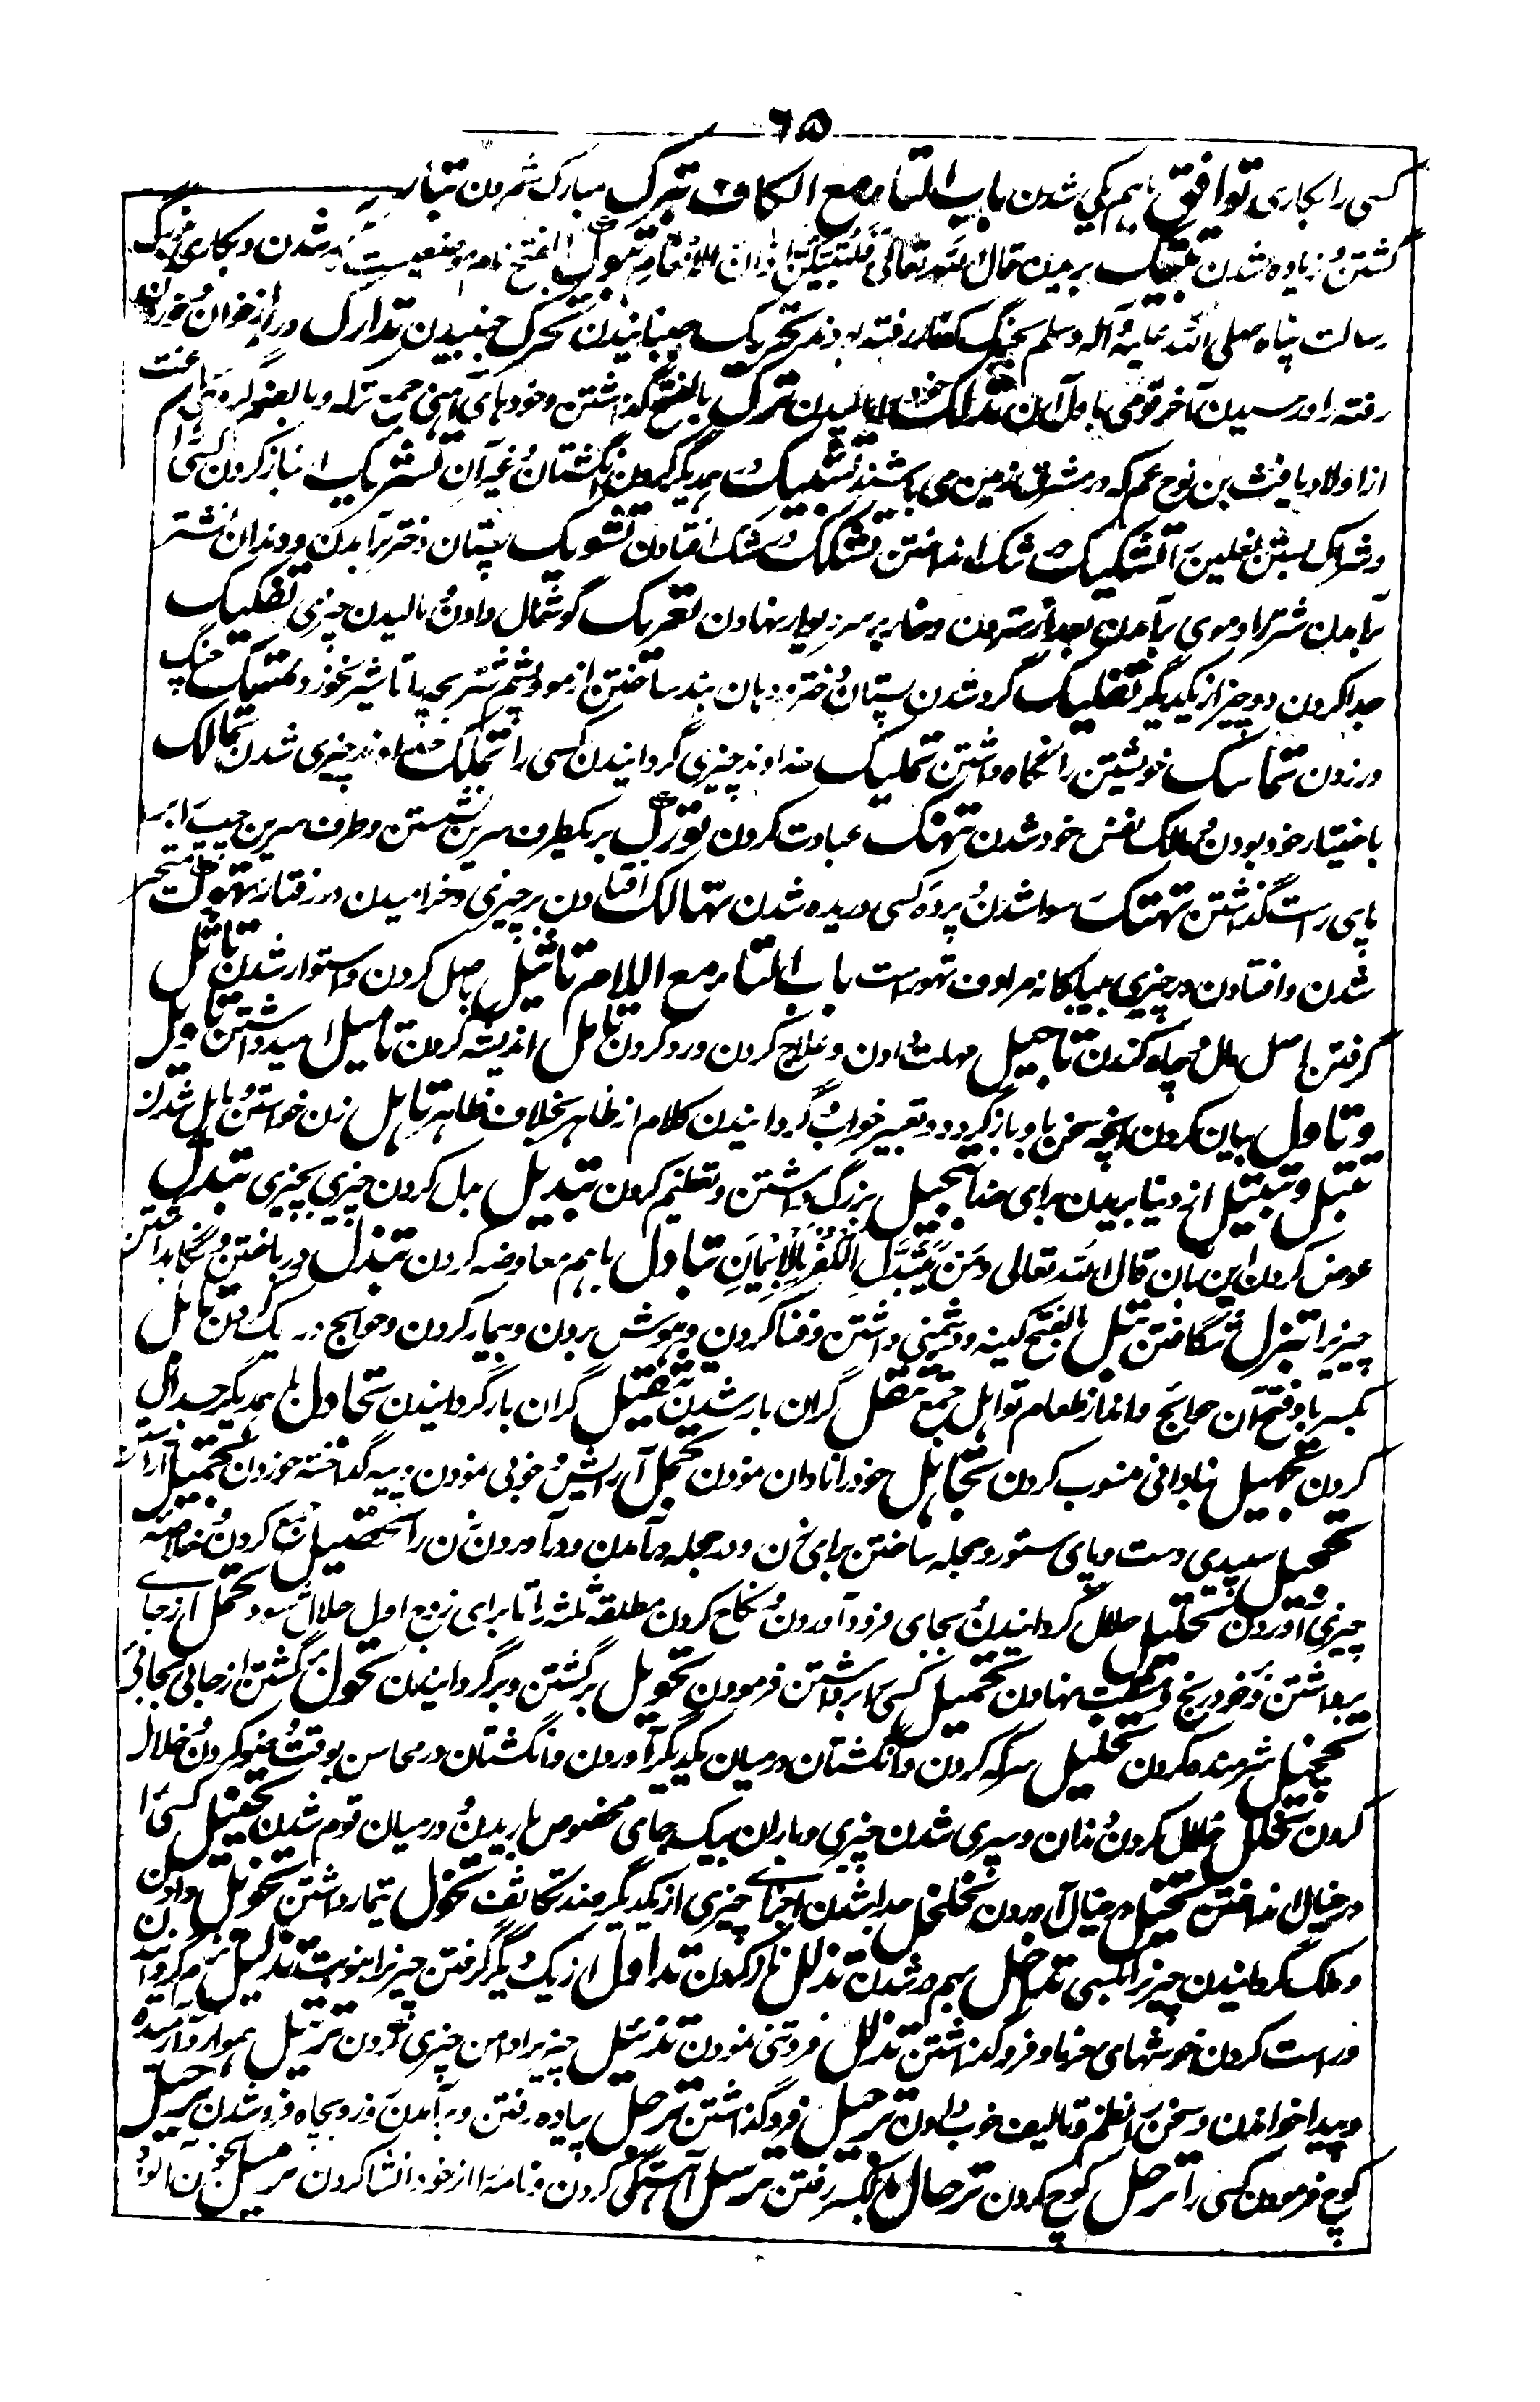 ٦٥
کسی را بکاری توافق باهم یکی شدن باب التاء مع الکاف تبرک مبارک شمردن تبارک
گشتن و زیاده شدن تبتیک بریدن قال الله تعالی فلیبتکن آذان الانعام تبوک بالفتح نام موضعیست که شدن و بکاری
رسالت پناه صلی الله علیه و آله و سلم بجنگ کفار رفته بودند تحریک جنبانیدن تحرک جنبیدن تدارک در از خوان و خوردن
رفته را و رسیدن آخر قومی باول آن تدلک خود را مالیدن ترک بالفتح گذاشتن و خودهای آهنی جمع ترکه و بالضم گروهی
از اولاد یافث بن نوح عم که در مشرق زمین می باشند تشبیک در یکدیگر کردن انگشتان و غیر آن تشریک انباز کردن کسی را
و شراک بستن نعلین را تشکیک در شک انداختن تشکک در شک افتادن تشویک پستان دختر برآمدن و دندان شتر
برآمدن شتر را و موی برآمدن بعد از ستردن و خار بر سر دیوار نهادن تعریک گوشمال دادن و مالیدن چیزی تفکیک
جدا کردن دو چیز از یکدیگر تفلیک گرد شدن پستان دختر و دهان بند ساختن از موی و پشم شتر بچه را تا شیر نخورد تمسیک چنگ
در زدن تماسک خویشتن را نگاه داشتن تملیک خداوند چیزی گردانیدن کسی را تملک خداوند چیزی شدن تمالک
باختیار خود بودن و مالک نفس خود شدن تنسک عبادت کردن تورک بر یکطرف سرین نشستن و طرف سرین چپ را بر
پای راست گذاشتن تهتک رسوا شدن و پرده کسی دریده شدن تهالک افتادن بر چیزی و خرامیدن در رفتار تهوک متحیر
شدن و افتادن در چیزی بیباکانه مرادف تهور است باب التاء مع اللام تاثیل باصل کردن و استوار شدن تاثل
گرفتن اصل مال و چاه کندن تاجیل مهلت دادن و علاج کردن درد گردن تامل اندیشه کردن تامیل امید داشتن تاویل
و تاول بیان کردن آنچه سخن باو باز گردد و تعبیر خواب و گردانیدن کلام از ظاهر بخلاف ظاهر تاهل زن خواستن و اهل شدن
تبتل و تبتیل از دنیا بریدن برای خدا تبجیل بزرگ داشتن و تعظیم کردن تبدیل بدل کردن چیزی بچیزی تبدل
عوض کردن این بآن قال الله تعالی و من یتبدل الکفر بالایمان تبادل باهم معاوضه کردن تبذل در باختن و نگاه نداشتن
چیزیرا تبزل شگافتن تبل بالفتح کینه و دشمنی داشتن و فنا کردن و بیهوش بردن و بیمار کردن و حوایج در دیگ کردن تابل
بکسر با و فتح آن حوائج و انداز طعام توابل جمع تثقل گران بار شدن تثقیل گران بار گردانیدن تجادل با یکدیگر جدال
کردن تجهیل بنادانی منسوب کردن تجاهل خود را نادان نمودن تجمل آرایش و خوبی نمودن و پیه گداخته خوردن تجمیل آراستن
تحجیل سپیدی دست و پای ستور و حجله ساختن برای زن و در حجله درآمدن و درآوردن زن را تحصیل جمع کردن و خلاصه
چیزی آوردن تحلیل حلال گردانیدن و بجای فرود آوردن و نکاح کردن مطلقه ثلثه را تا برای زوج اول حلال شود تحمل از جای
برداشتن و بر خود رنج و مشقت نهادن تحمیل کسی را بر داشتن فرمودن تحویل برگشتن و برگردانیدن تحول گشتن از جائی بجائی
تخجیل شرمنده کردن تخلیل سرکه کردن و انگشتان در میان یکدیگر آوردن و انگشتان در محاسن بوقت وضو کردن و خلال
کردن تخلل خلال کردن دندان و سپری شدن چیزی و باران بیک جای مخصوص باریدن و در میان قوم شدن تخییل کسی را
در خیال انداختن تخیل در خیال آوردن تخلخل جدا شدن اجزای چیزی از یکدیگر ضد تکاثف تخول تیمار داشتن تخویل دادن
و ملک گردانیدن چیزیرا بکسی تداخل بهم در شدن تدلل ناز کردن تداول از یکدیگر گرفتن چیزیرا بنوبت تذلیل رام گردانیدن
و راست کردن خوشهای خرما و فرو گذاشتن تذلل فروتنی نمودن تذئیل چیزیرا دامن چیزی کردن ترتیل هموار و آرمیده
و پیدا خواندن و سخن را نظم و تالیف خوب دادن ترجیل فرو گذاشتن ترجل پیاده رفتن و برآمدن روز و بچاه فرو شدن ترحیل
کوچ فرمودن کسی را ترحل کوچ کردن ترحال بالکسر رفتن ترسل آهستگی کردن و نامه را از خود انشا کردن ترسیل